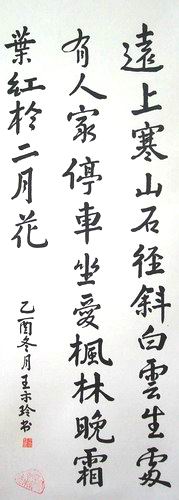 遠上寒山石径斜白雲生處
有人家停車坐愛楓林晚霜
葉紅於二月花
乙酉冬月王玲书